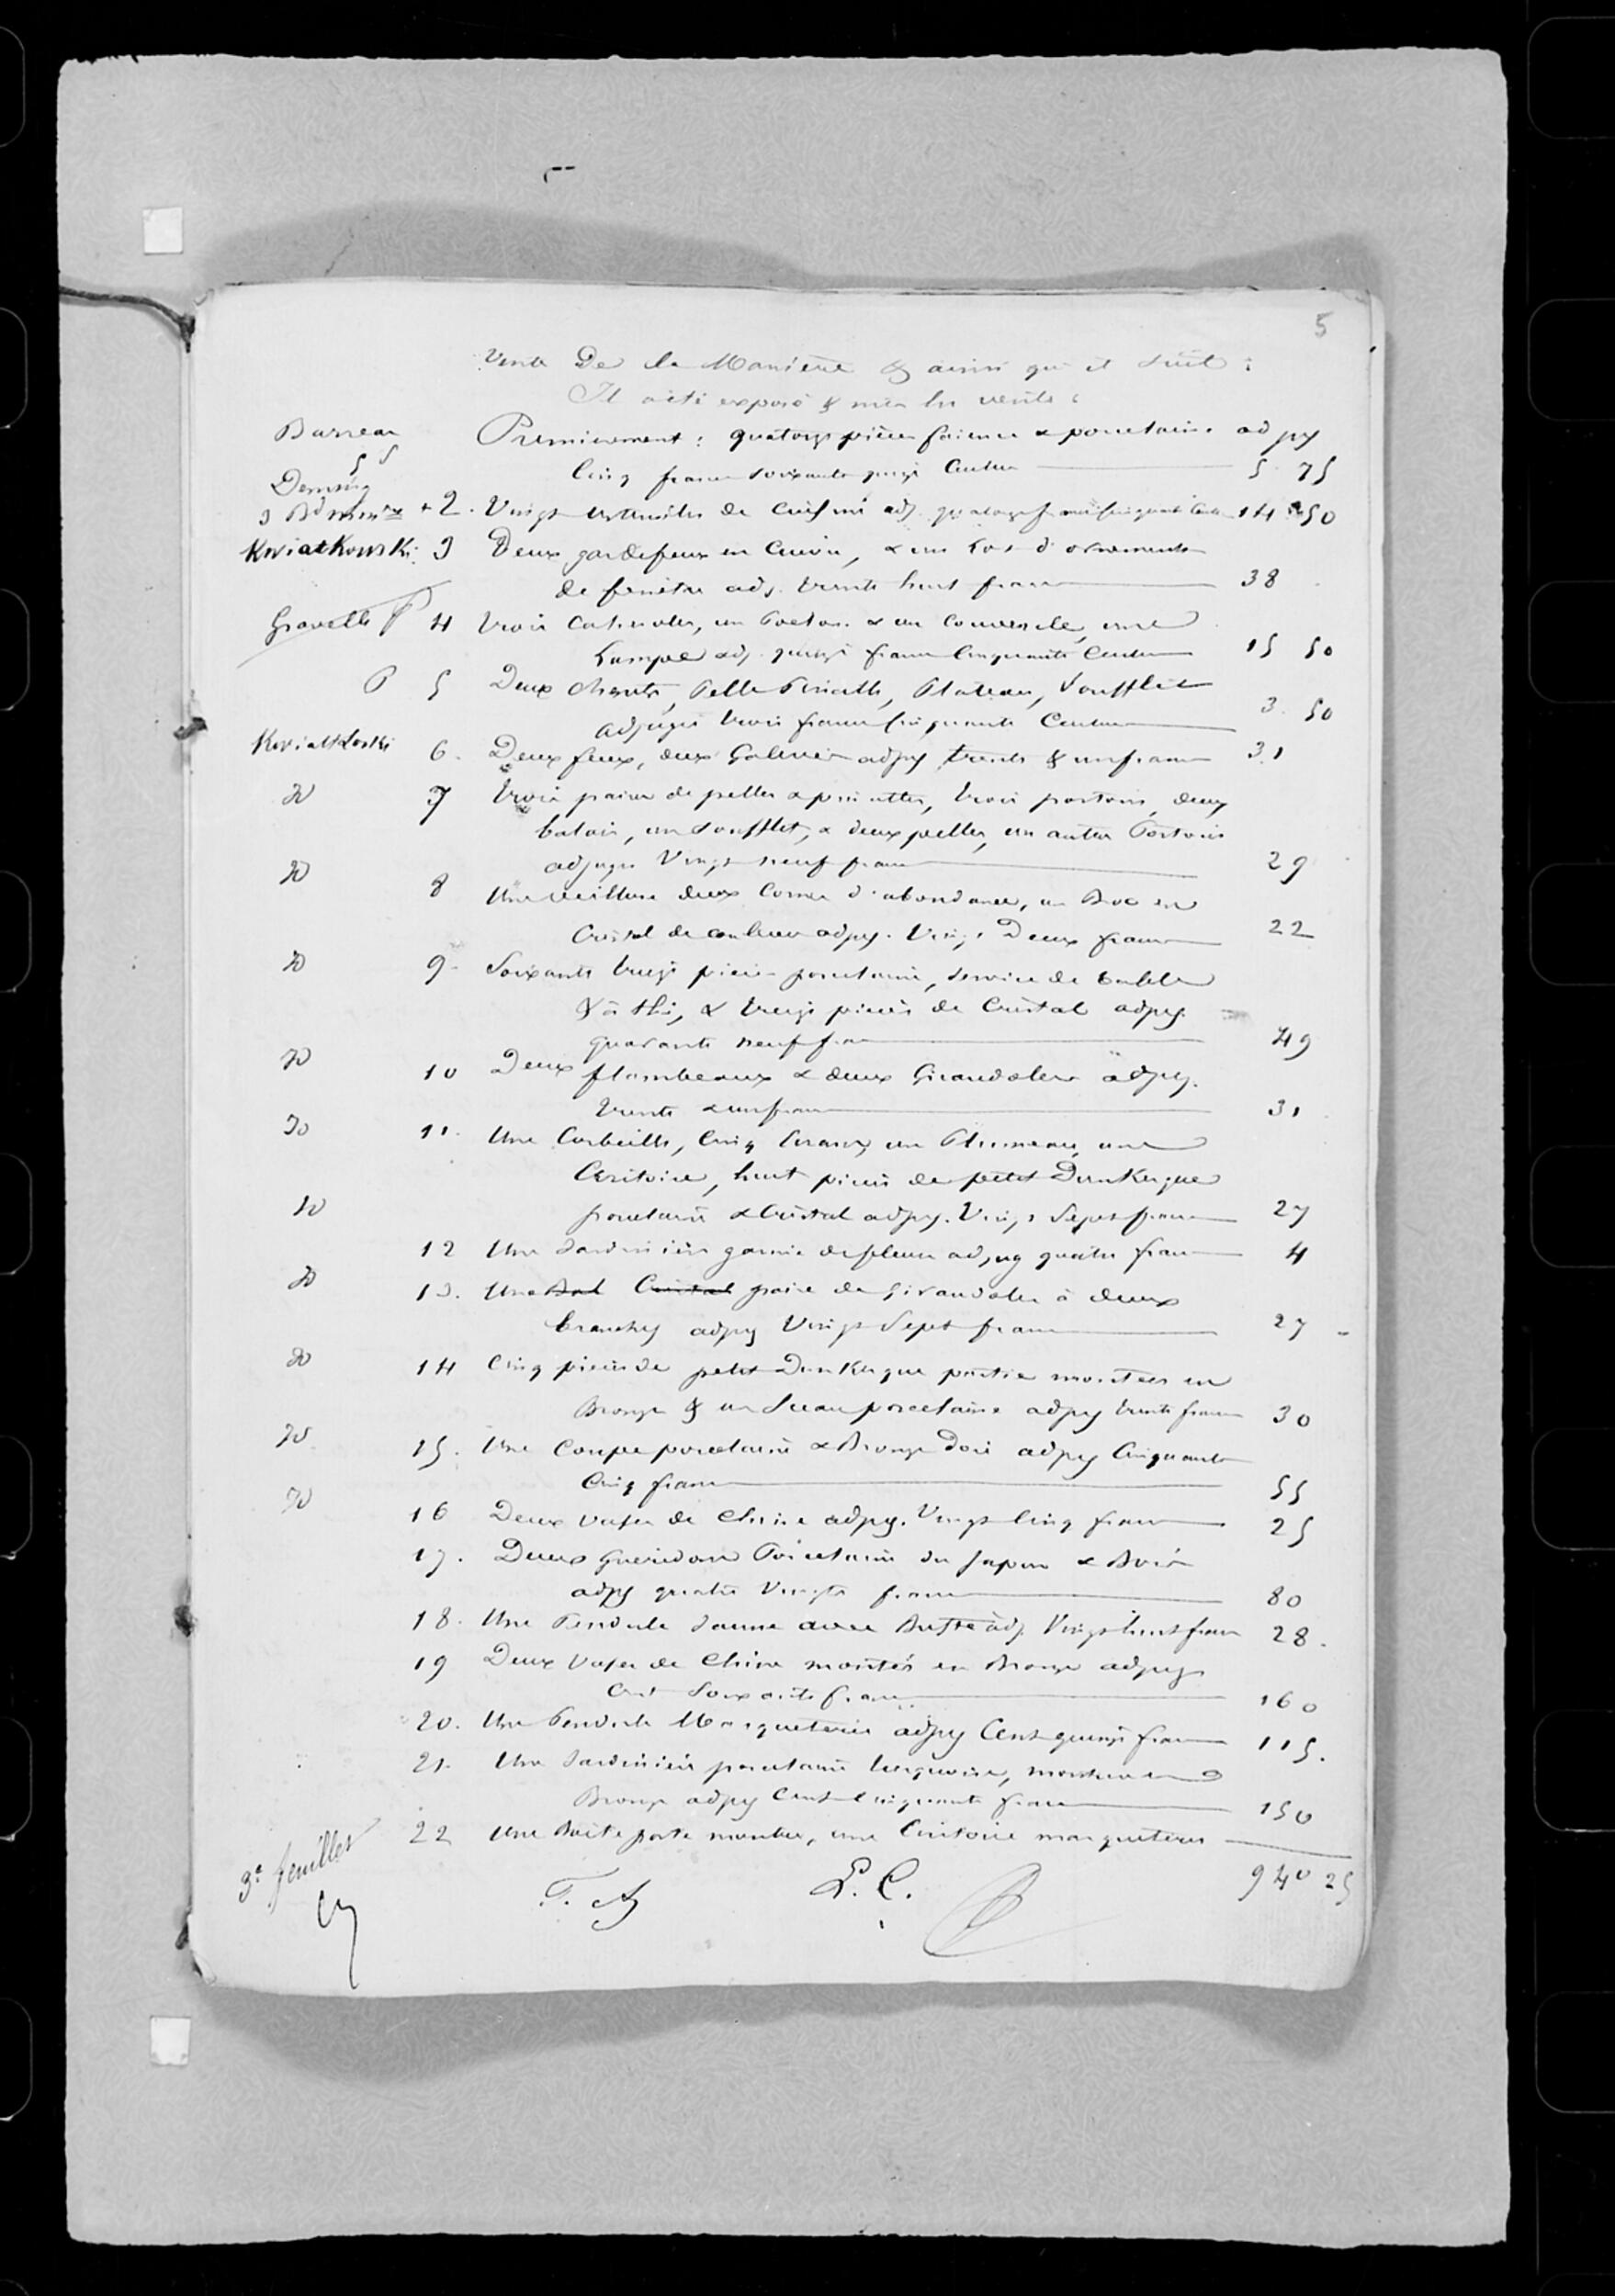 5
Vente De la Manière & ainsi qu'il suit :
Il a été exposé & mis en vente :
Barreau Premièrement : quatorze pièces faience & porcelaine adjug
cinq francs soixante quinze Centimes 5 75
+2. Vingt ustensiles de Cuisine adj. quatorze francs cinquante Cent 14 50
Kwiatkowski. 3 Deux gardefeux en Cuivre, & un Lot d'ornements
de fenêtre adj. trente huit francs 38
Gravelle P 4 trois Casseroles, un & un Couvercle, une
Lampe adj. quinze francs Cinquante Centimes 15 50
P 5 Deux Chenets, Pelle Pincette, Plateau, Soufflet
Adjugés trois francs Cinquante Centimes 3. 50
Kwiatkoski 6. Deux feux, deux Galeries adjug trente & un francs 31
D 7 trois paires de pelles & pincettes, trois portoirs, deux
balais, un Soufflet, & deux pelles, un autre Portoir
adjugés Vingt neuf francs 29
D 8 Une veilleuse deux Cornes d'abondance, un Broc en
Cristal de couleur adjug. Vingt Deux francs 22
D 9. Soixante treize pièces porcelaine, service de table
& à thé, & treize pièces de Cristal adjug.
quarante neuf francs 49
D 10 Deux flambeaux & deux Girandoles adjug.
trente & un francs 31
D 11. Une Corbeille, Cinq un Plumeau, une
Ecritoire, huit pièces de petit Dunkerque
D porcelaine & Cristal adjug. Vingt Sept francs 27
12 Une Jardinière garnie de fleurs adjug quatre francs 4
D 13. Une Bol Cristal paire de Girandoles à deux
branches adjug Vingt Sept francs 27
D 14 Cinq pièces de petit Dunkerque partie montées en
Bronze & un Sceau porcelaine adjug trente francs 30
D 15. Une Coupe porcelaine & Bronze Doré adjug Cinquante
Cinq francs 55
D 16 Deux vases de Chine adjug. Vingt Cinq francs 25
17. Deux Guéridons Porcelaine du Japon & Bois
adjug quatre Vingts francs 80
18. Une Pendule Jaune avec adj. Vingt huit francs 28.
19 Deux Vases de Chine montés en Bronze adjug
Cent Soixante francs 160
20. Une Pendule Marqueterie adjug Cent quinze francs 115.
21. Une Jardinière porcelaine turquoise, monture en
Bronze adjug Cent Cinquante francs 150
22 Une Boîte porte montre, une Ecritoire marqueterie
940 25
3e feuillet
L. C.